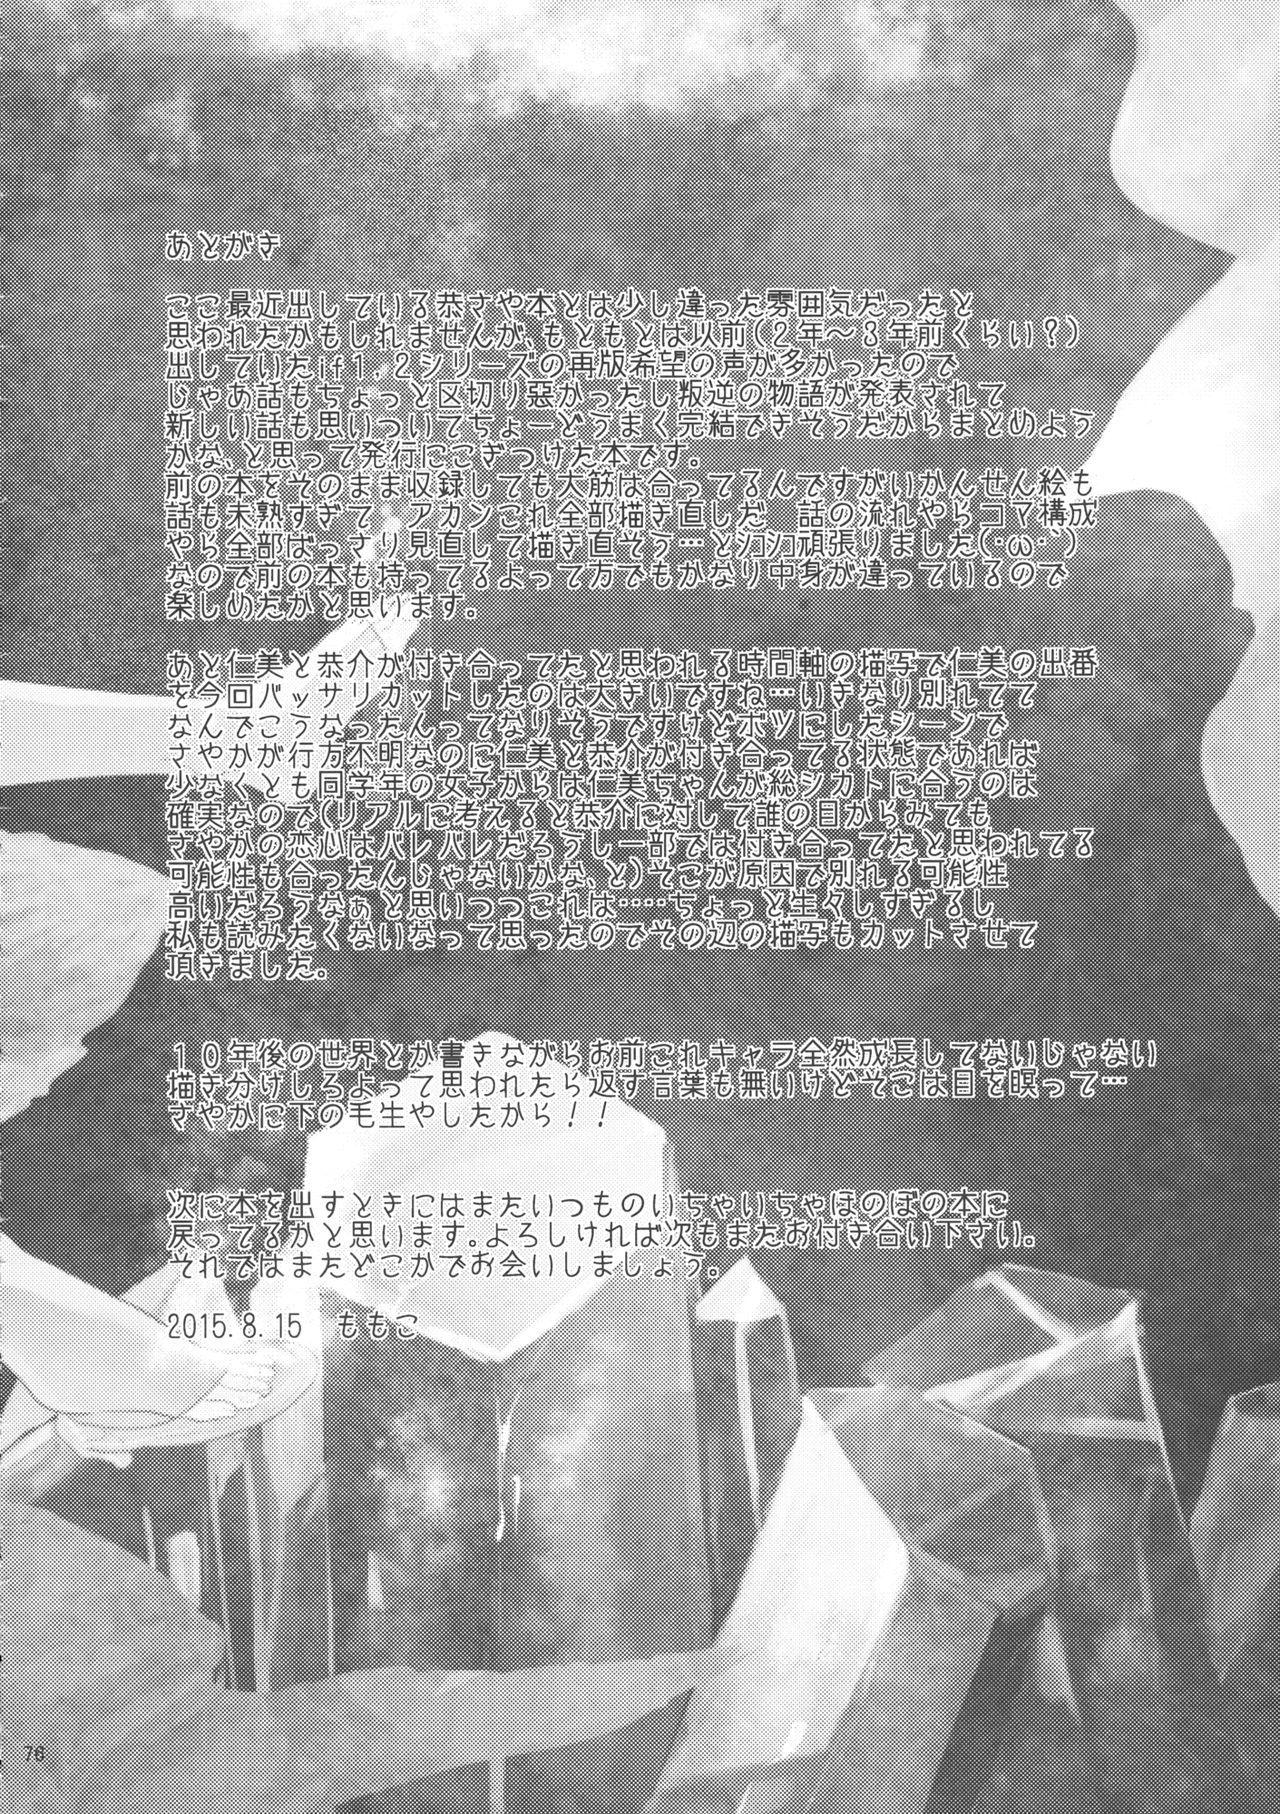 あとがき
ここ最近出している恭さや本とは少し違った雰囲気だったと
思われたかもしれませんが、もともとは以前(2年～3年前くらい?)
出していたif1，2シリーズの再版希望の声が多かったので
じゃあ話もちょっと区切り悪かったし叛逆の物語が発表されて
新しい話も思いついてちょーどうまく完結できそうだからまとめよう
かな、と思って発行にこぎつけた本です。
前の本をそのまま収録しても大筋は合ってるんですがいかんせん絵も
話も未熟すぎて　アカンこれ全部描き直しだ　話の流れやらコマ構成
やら全部ばっさり見直して描き直そう…とｼｺｼｺ頑張りました(･ω･`)
なので前の本も持ってるよって方でもかなり中身が違っているので
楽しめたかと思います。
あと仁美と恭介が付き合ってたと思われる時間軸の描写で仁美の出番
を今回バッサリカットしたのは大きいですね…いきなり別れてて
なんでこうなったんってなりそうですけどボツにしたシーンで
さやかが行方不明なのに仁美と恭介が付き合ってる状態であれば
少なくとも同学年の女子からは仁美ちゃんが総シカトに合うのは
確実なので(リアルに考えると恭介に対して誰の目からみても
さやかの恋心はバレバレだろうし一部では付き合ってたと思われてる
可能性も合ったんじゃないかな、と)そこが原因で別れる可能性
高いだろうなぁと思いつつこれは……ちょっと生々しすぎるし
私も読みたくないなって思ったのでその辺の描写もカットさせて
頂きました。
10年後の世界とか書きながらお前これキャラ全然成長してないじゃない
描き分けしろよって思われたら返す言葉も無いけどそこは目を瞑って…
さやかに下の毛生やしたから!!
次に本を出すときにはまたいつものいちゃいちゃほのぼの本に
戻ってるかと思います。よろしければ次もまたお付き合い下さい。
それではまたどこかでお会いしましょう。
2015.8.15　ももこ
76